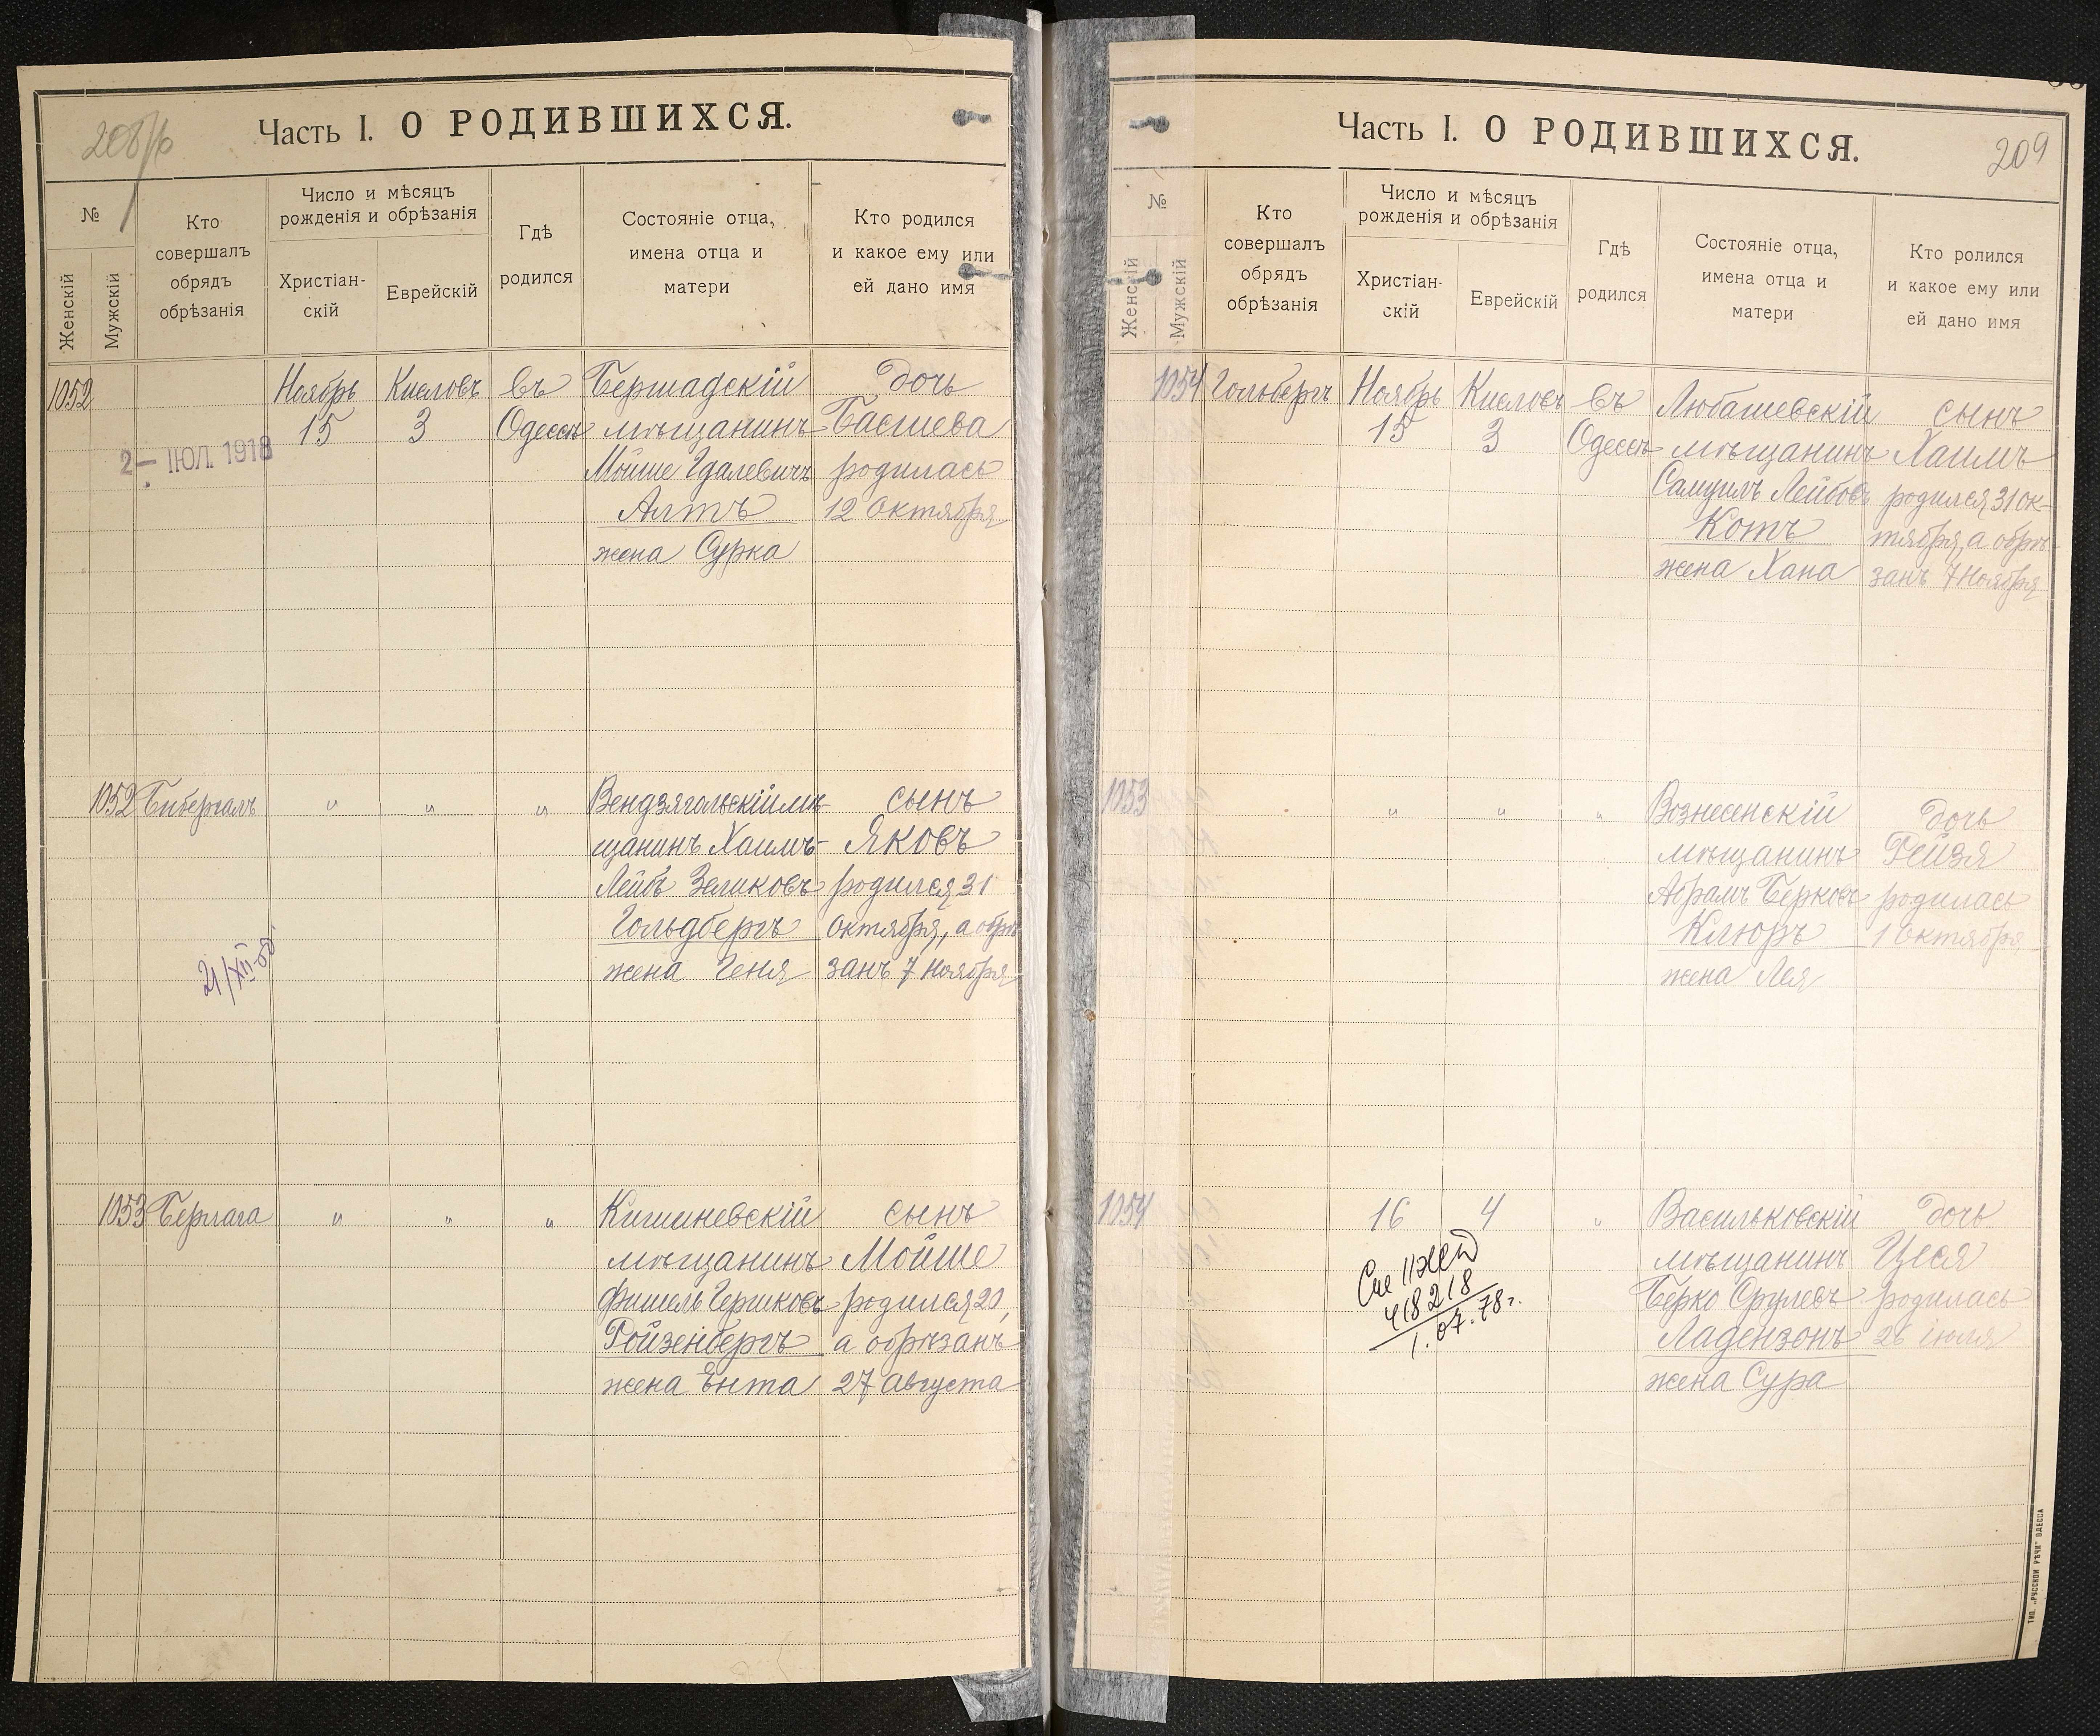 208/б
Часть I. О РОДИВШИХСЯ.
№
Женскій
Мужскій
Кто
совершалъ
обрядъ
обрѣзанія
Число и мѣсяцъ
рожденія и обрѣзанія
Христіан-
скій
Еврейскій
Гдѣ
родился
Состояніе отца,
имена отца и
матери
Кто родился
и какое ему или
ей дано имя
1052 Ноябрь Кислевъ въ Бершадскій дочь
15 3 Одессѣ мѣщанинъ Басшева
2 - ІЮЛ. 1918
Мойше Гдалевичъ родилась
Алтъ 12 Октября
жена Сурка
1052 Бибергалъ " " " Вендзягольскій мѣ- сынъ
щанинъ Хаимъ- Яковъ
Лейбъ Зеликовъ родился 31
Гольдбергъ Октября, а обрѣ-
жена Геня занъ 7 Ноября
21/XII-58
1053 Берлага " " " Кишиневскій сынъ
мѣщанинъ Мойше
Фишель Гершковъ родился 20,
Ройзенбергъ а обрѣзанъ
жена Ента 27 Августа
Часть I. О РОДИВШИХСЯ.
209
№
Женскій
Мужскій
Кто
совершалъ
обрядъ
обрѣзанія
Число и мѣсяцъ
рожденія и обрѣзанія
Христіан-
скій
Еврейскій
Гдѣ
родился
Состояніе отца,
имена отца и
матери
Кто ролился
и какое ему или
ей дано имя
1054 Гольбергъ Ноябрь Кислевъ въ Любашевскій сынъ
15 3 Одессѣ мѣщанинъ Хаимъ
Самуилъ Лейбовъ родился 31 ок-
Котъ тября, а обрѣ-
жена Хана занъ 7 Ноября
1053 " " " Вознесенскій дочь
мѣщанинъ Рейзя
Абрамъ Берковъ родилась
Клюръ 1 Октября
жена Лея
1054 16 4 " Васильковскій дочь
мѣщанинъ Цеся
Берко Срулевъ родилась
Ладензонъ 26 іюля
жена Сура
418218
1. 07. 78 г.
ТИП. „РУССКОЙ РѢЧИ“ ОДЕССА